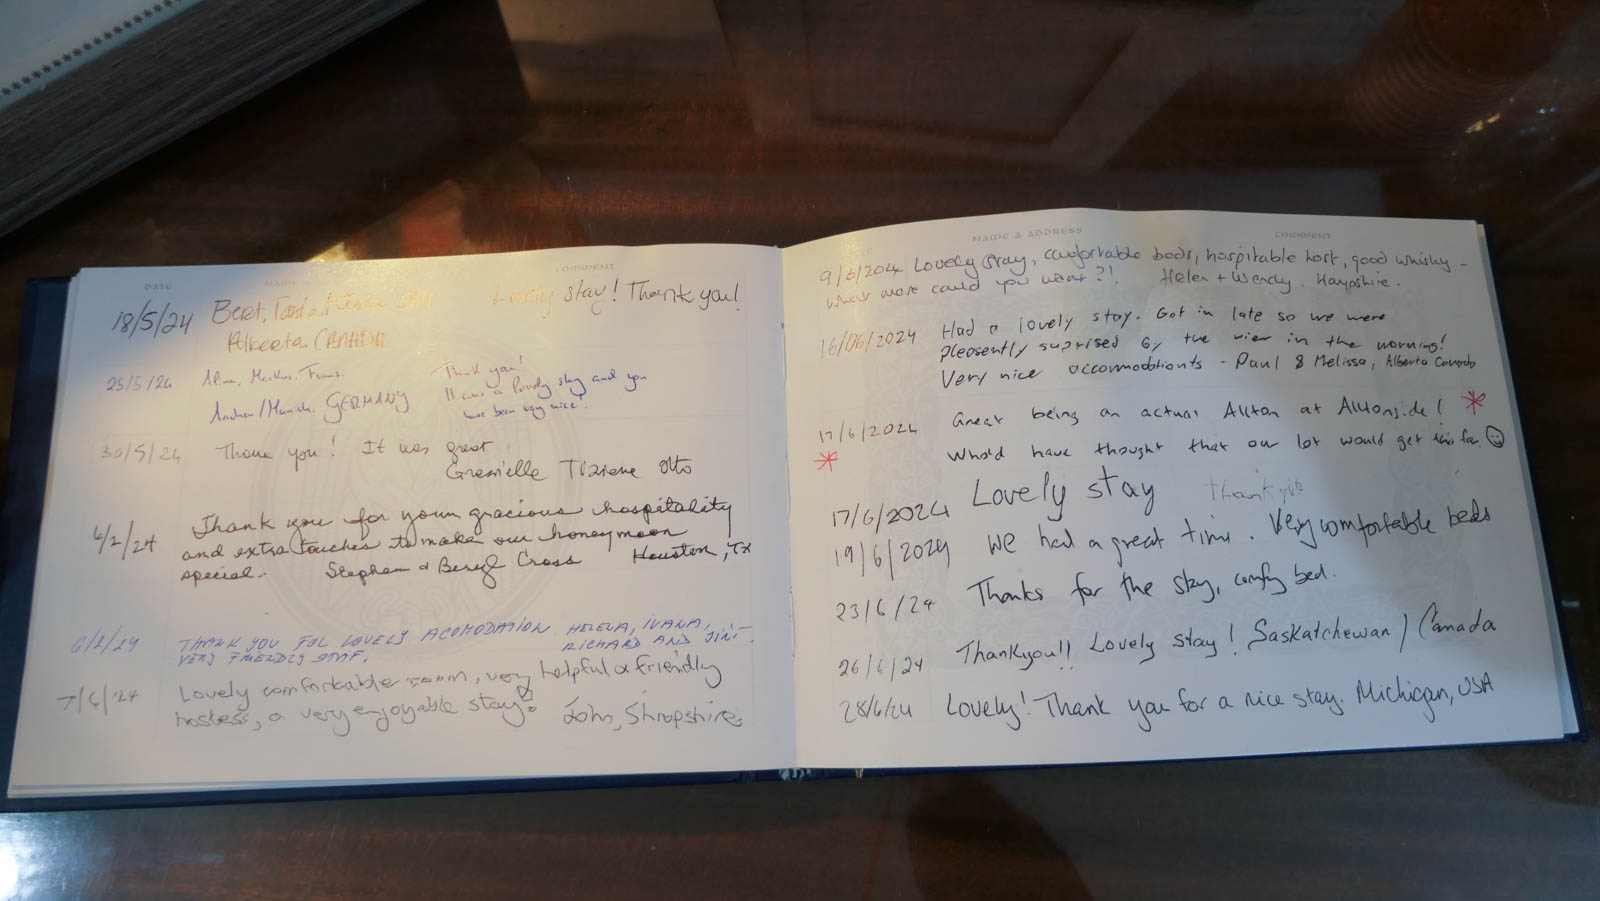 DATE
COMMENT
18/5/24 Bert, Lovely stay! Thank you!
Alberta CANADA
25/5/24 Thank you!
Munich, GERMANY It was a lovely stay and you
have been very nice!
30/5/24 Thank you! It was great
Otto
6/2/24 Thank you for your gracious hospitality
and extra touches to make our honeymoon
special. Stephen & Beryl Cross Houston, TX
6/2/24 THANK YOU FOL LOVELY ACOMODATION HELENA, IVANA,
VERY FRIENDLY STAF. RICHARD AND
7/6/24 Lovely comfortable room, very helpful & friendly
hostess, a very enjoyable stay. John, Shropshire.
NAME & ADDRESS COMMENT
9/6/2024 Lovely stay, comfortable beds, hospitable host, good whisky -
what more could you want?! Helen + Wendy, Hampshire.
16/06/2024 Had a lovely stay. Got in late so we were
pleasently suprised by the view in the morning!
Very nice accommodations - Paul & Melissa, Alberta Canada
17/6/2024 Great being an actual at !
Who'd have thought that our lot would get this far ☺
17/6/2024 Lovely stay Thank you
19/6/2024 We had a great time. Very comfortable beds
23/6/24 Thanks for the stay, comfy bed.
26/6/24 Thankyou!! Lovely stay! Saskatchewan / Canada
28/6/24 Lovely! Thank you for a nice stay. Michigan, USA